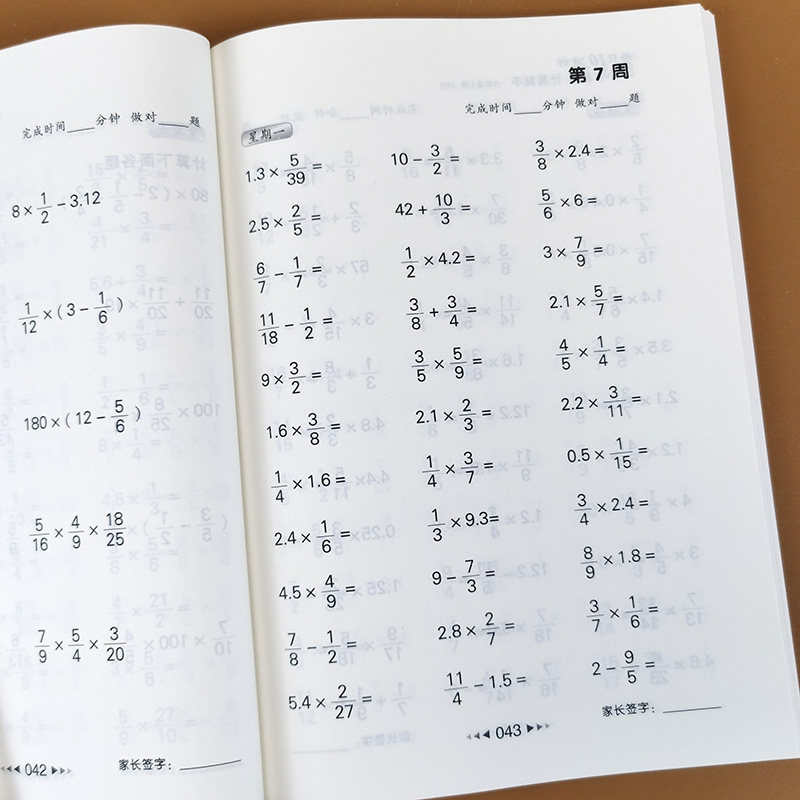 完成时间____分钟 做对____题
8×1/2-3.12
1/12×(3-1/6)
180×(12-5/6)
5/16×4/9×18/25
7/9×5/4×3/20
042
家长签字：________
第7周
完成时间____分钟 做对____题
星期一
1.3×5/39= 10-3/2= 3/8×2.4=
2.5×2/5= 42+10/3= 5/6×6=
6/7-1/7= 1/2×4.2= 3×7/9=
11/18-1/2= 3/8+3/4= 2.1×5/7=
9×3/2= 3/5×5/9= 4/5×1/4=
1.6×3/8= 2.1×2/3= 2.2×3/11=
1/4×1.6= 1/4×3/7= 0.5×1/15=
2.4×1/6= 1/3×9.3= 3/4×2.4=
4.5×4/9= 9-7/3= 8/9×1.8=
7/8-1/2= 2.8×2/7= 3/7×1/6=
5.4×2/27= 11/4-1.5= 2-9/5=
043
家长签字：________